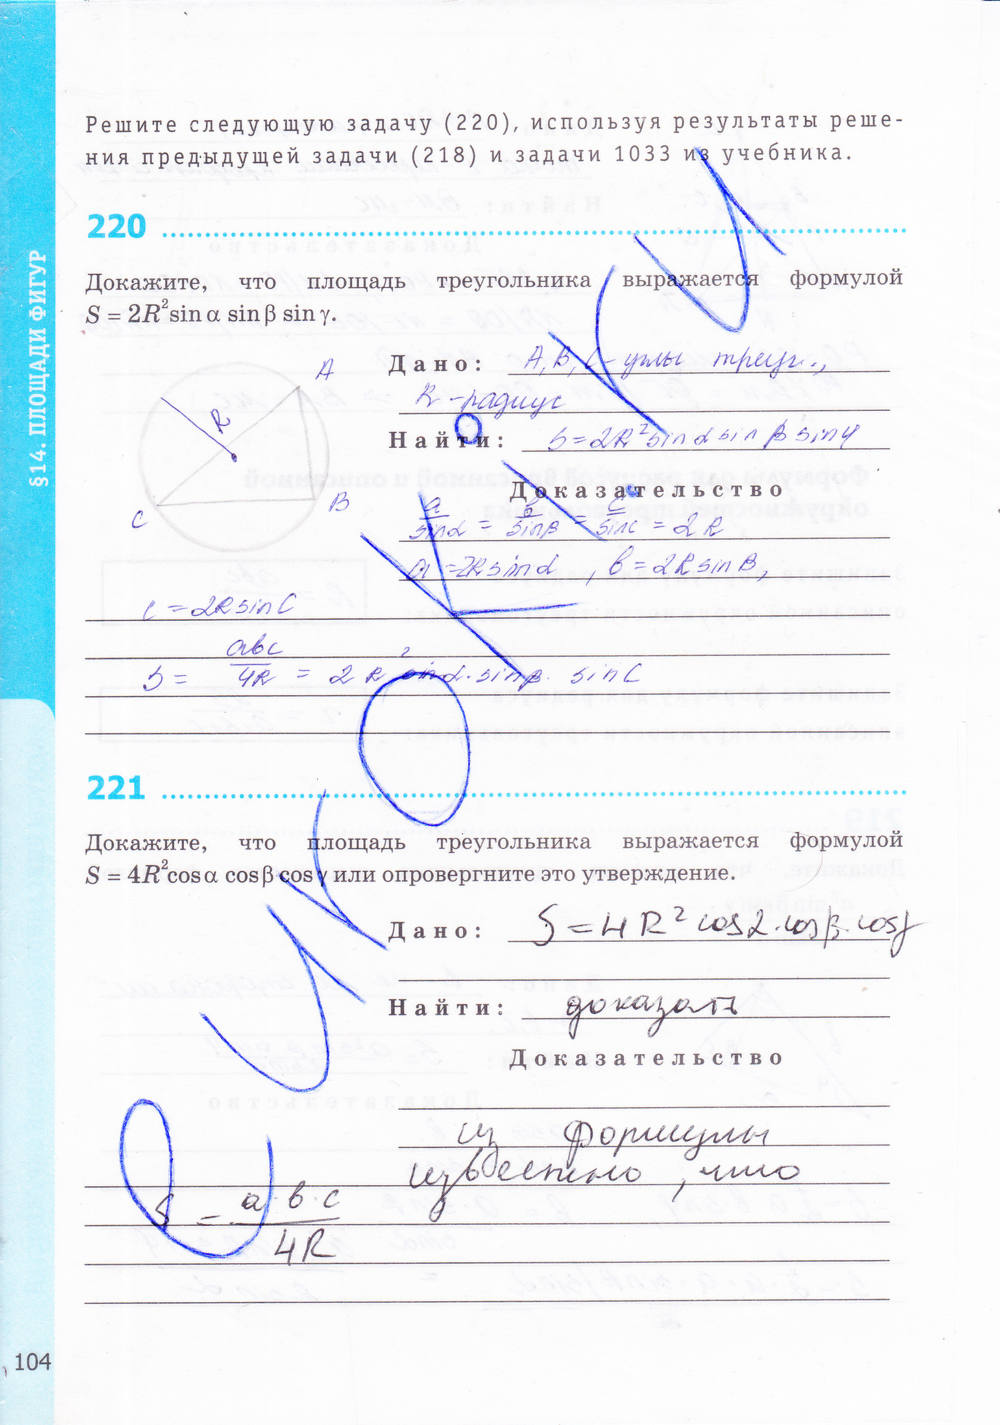 Решите следующую задачу (220), используя результаты реше-
ния предыдущей задачи (218) и задачи 1033 из учебника.
220
§14. ПЛОЩАДИ ФИГУР
Докажите, что площадь треугольника выражается формулой
S = 2R² sin α sin β sin γ.
Дано: A, B, C – углы треуг.,
R – радиус
Найти: S = 2R² sin α sin β sin γ
A
R
B
C
Доказательство
a/sin α = b/sin β = c/sin C = 2R
a = 2R sin α, b = 2R sin B,
c = 2R sin C
S = abc/4R = 2R² sin α · sin β · sin C
221
Докажите, что площадь треугольника выражается формулой
S = 4R² cos α cos β cos γ или опровергните это утверждение.
Дано: S = 4R² cos α · cos β · cos γ
Найти: доказать
Доказательство
из формулы
известно, что
S = a · b · c / 4R
104